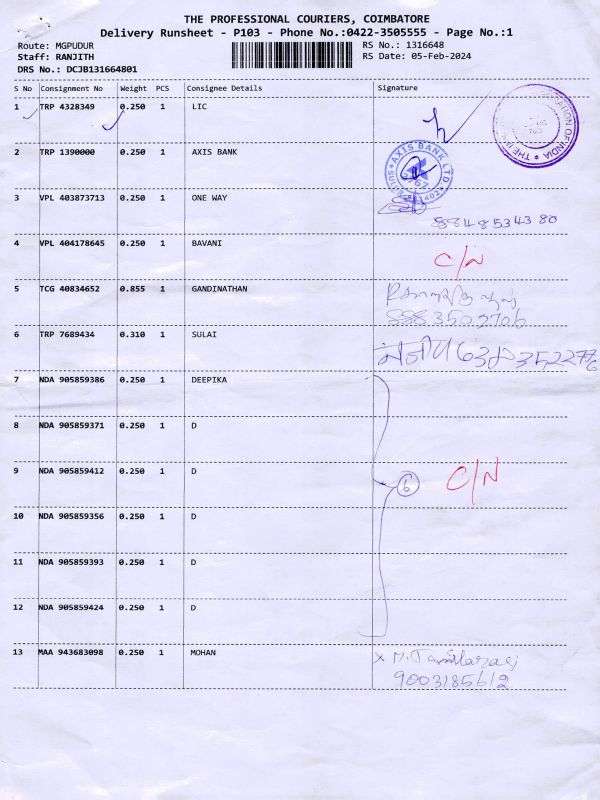 THE PROFESSIONAL COURIERS, COIMBATORE
Delivery Runsheet - P103 - Phone No.:0422-3505555 - Page No.:1
Route: MGPUDUR RS No.: 1316648
Staff: RANJITH RS Date: 05-Feb-2024
DRS No.: DCJB131664801
S No Consignment No Weight PCS Consignee Details Signature
1 TRP 4328349 0.250 1 LIC
2 TRP 1390000 0.250 1 AXIS BANK
AXIS BANK LTD
3 VPL 403873713 0.250 1 ONE WAY
8848534380
4 VPL 404178645 0.250 1 BAVANI C/N
5 TCG 40834652 0.855 1 GANDINATHAN
8883502706
6 TRP 7689434 0.310 1 SULAI
7 NDA 905859386 0.250 1 DEEPIKA
8 NDA 905859371 0.250 1 D
9 NDA 905859412 0.250 1 D 6 C/N
10 NDA 905859356 0.250 1 D
11 NDA 905859393 0.250 1 D
12 NDA 905859424 0.250 1 D
13 MAA 943683098 0.250 1 MOHAN
9003185612